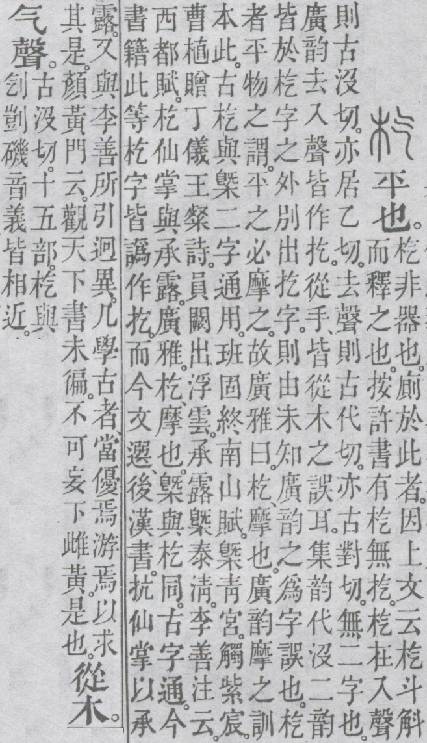 平也。杚非器也。廁於此者。因上文云杚斗斛
而釋之也。按許書有杚無扢。杚在入聲
則古沒切。亦居乙切。去聲則古代切。亦古對切。無二字也。
廣韵去入聲皆作扢。從手。皆從木之誤耳。集韵代沒二韵
皆於杚字之外別出扢字。則由未知廣韵之爲字誤也。杚
者平物之謂。平之必摩之。故廣雅曰。杚、摩也。廣韵摩之訓
本此。古杚與槩二字通用。班固終南山賦。槩靑宮。觸紫宸。
曹植贈丁儀王粲詩。員闕出浮雲。承露槩泰淸。李善注云。
西都賦。杚仙掌與承露。廣雅。杚摩也。槩與杚同。古字通。今
書籍此等杚字皆譌作扢。而今文選、後漢書。抗仙掌以承
露。又與李善所引迥異。凡學古者當優焉游焉以求
其是。顏黃門云。觀天下書未徧。不可妄下雌黃。是也。從木。
气聲。古沒切。十五部。杚與
刉剴磯音義皆相近。